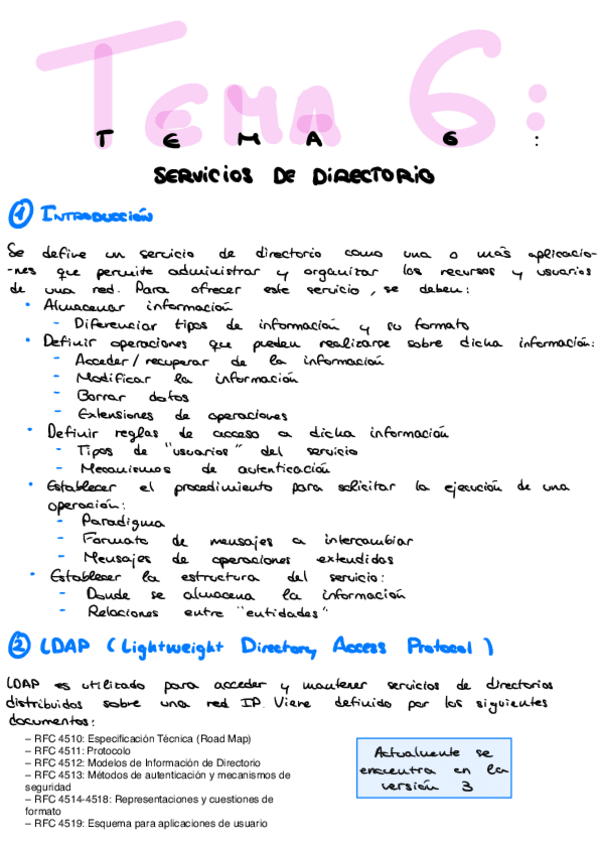 TEMA 6:
T E M A 6 :
SERVICIOS DE DIRECTORIO
① INTRODUCCIÓN
Se define un servicio de directorio como una o más aplicacio-
-nes que permite administrar y organizar los recursos y usuarios
de una red. Para ofrecer este servicio, se deben:
• Almacenar información
- Diferenciar tipos de información y su formato
• Definir operaciones que puedan realizarse sobre dicha información:
- Acceder / recuperar de la información
- Modificar la información
- Borrar datos
- Extensiones de operaciones
• Definir reglas de acceso a dicha información
- Tipos de "usuarios" del servicio
- Mecanismos de autenticación
• Establecer el procedimiento para solicitar la ejecución de una
operación:
- Paradigma
- Formato de mensajes a intercambiar
- Mensajes de operaciones extendidas
• Establecer la estructura del servicio:
- Donde se almacena la información
- Relaciones entre "entidades"
② LDAP (Lightweight Directory Access Protocol)
LDAP es utilizado para acceder y mantener servicios de directorios
distribuidos sobre una red IP. Viene definido por los siguientes
documentos:
– RFC 4510: Especificación Técnica (Road Map)
– RFC 4511: Protocolo
– RFC 4512: Modelos de Información de Directorio
– RFC 4513: Métodos de autenticación y mecanismos de
seguridad
– RFC 4514-4518: Representaciones y cuestiones de
formato
– RFC 4519: Esquema para aplicaciones de usuario
Actualmente se
encuentra en la
versión 3